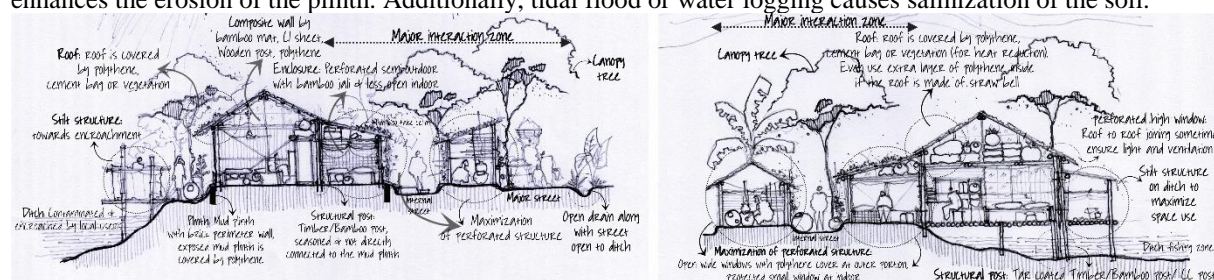 enhances the erosion of the plinth. Additionally, tidal flood or water logging causes salinization of the soil.
Composite wall by
bamboo mat, CI sheet,
Wooden post, polythene
Major interaction zone
Roof: roof is covered
by polythene,
cement bag or vegetation
Enclosure: Perforated semi outdoor
with bamboo jali & less open indoor
Canopy
tree
Stilt structure:
towards encroachment
Ditch: Contaminated &
encroached by local users
Plinth: Mud plinth
with brick perimeter wall,
exposed mud plinth is
covered by polythene
Structural post:
Timber/Bamboo post,
seasoned & not directly
connected to the mud plinth
Internal
street
Major street
Maximization
of perforated structure
Open drain along
with street
open to ditch
Major interaction zone
Roof: roof is covered by polythene,
cement bag or vegetation (for heat reduction).
Even use extra layer of polythene inside
if the roof is made of straw
Canopy tree
perforated high window:
Roof to roof joining sometim
ensure light and ventilation
Stilt structure
on ditch to
maximize
space use
Internal street
Ditch fishing zone
Maximization of perforated structure:
Open wide windows with polythene cover at outer portion,
Protected small window at indoor
Structural post: Tar coated Timber/Bamboo post/